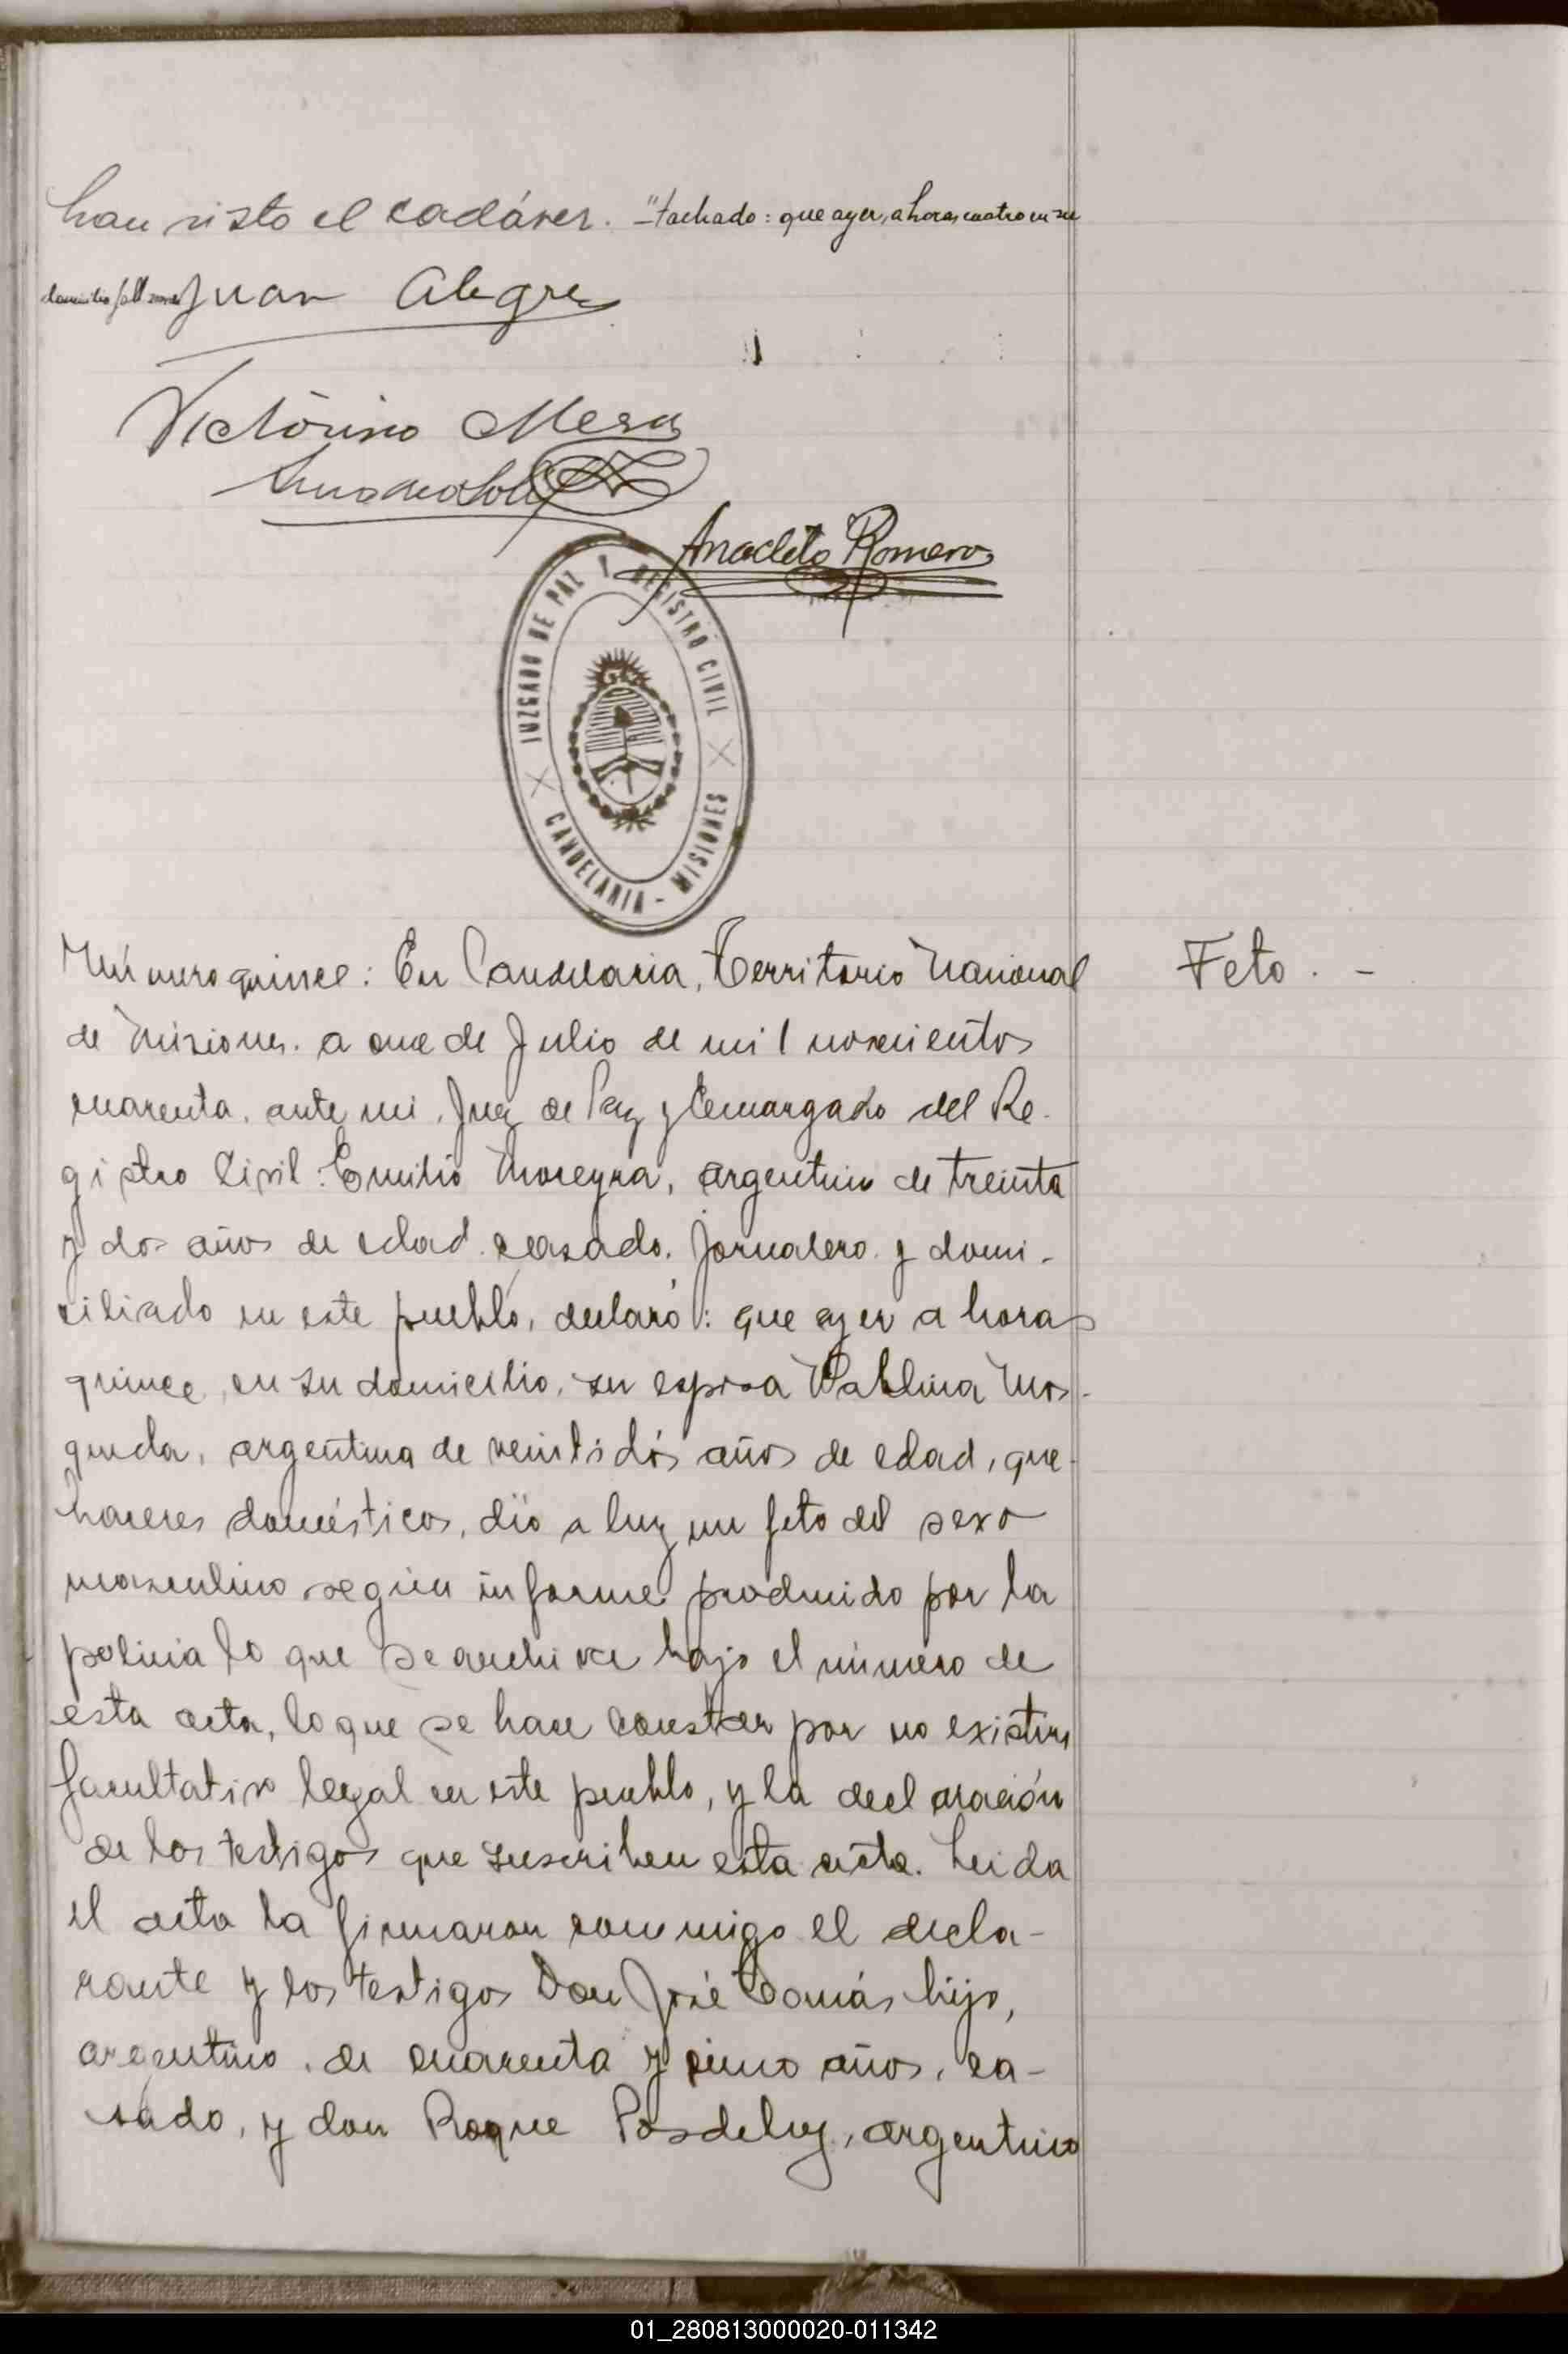 han visto el cadáver. -"tachado: que ayer, a horas cuatro en su
domicilio
Juan Alegre
Victorino Mesa
Anacleto Romero
JUZGADO DE PAZ Y REGISTRO CIVIL
CANDELARIA - MISIONES
Número quince: En Candelaria, Territorio Nacional
Feto. -
de Misiones. a once de Julio de mil novecientos
cuarenta. ante mi, Juez de Paz y Encargado del Re-
gistro Civil: Emilio Moreyra, argentino de treinta
y dos años de edad. casado. jornalero. y domi-
ciliado en este pueblo, declaró: que ayer a horas
quince, en su domicilio, su esposa Pablina Mos-
queda, argentina de veintidós años de edad, que-
haceres domésticos, dió a luz un feto del sexo
masculino según informe producido por la
policia lo que se archiva bajo el número de
esta acta, lo que se hace constar por no existir
facultativo legal en este pueblo, y la declaración
de los testigos que suscriben esta acta. Leida
el acta la firmaron conmigo el decla-
rante y los testigos Don José Comás hijo,
argentino, de cuarenta y cinco años, ca-
sado, y don Roque Posdeley, argentino
01_280813000020-011342